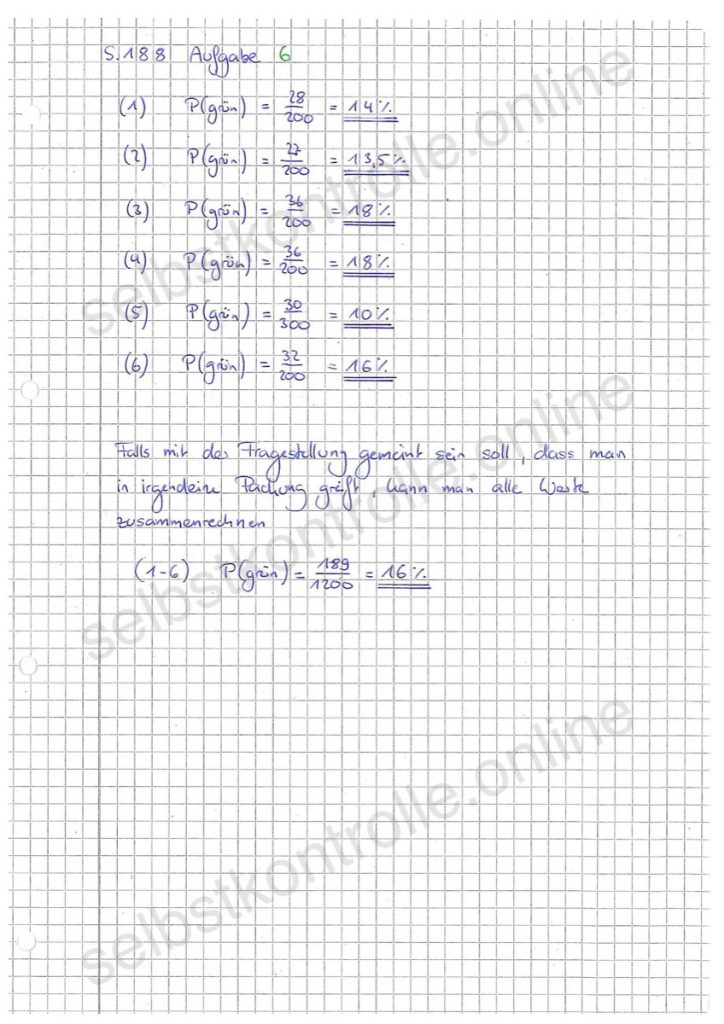 S.188 Aufgabe 6
(1) P(grün) = 28/200 = 14%
(2) P(grün) = 27/200 = 13,5%
(3) P(grün) = 36/200 = 18%
(4) P(grün) = 36/200 = 18%
(5) P(grün) = 30/300 = 10%
(6) P(grün) = 32/200 = 16%
Falls mit der Fragestellung gemeint sein soll, dass man
in irgendeine Packung greift, kann man alle Werte
zusammenrechnen
(1-6) P(grün) = 189/1200 = 16%
selbstkontrolle.online
selbstkontrolle.online
selbstkontrolle.online